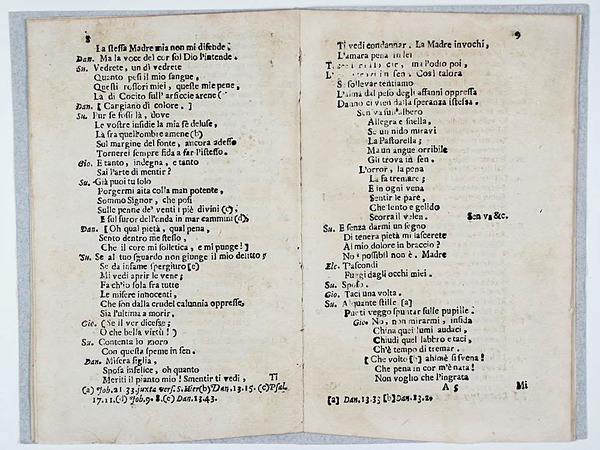 8
La stessa Madre mia non mi difende.
Dan. Ma la voce del cor sol Dio l'intende.
Su. Vedrete, un dì vedrete
Quanto pesi il mio sangue,
Questi rossori miei, queste mie pene,
Là di Cocito sull'arsiccie arene (a)
Dan. [Cangiano di colore.]
Su. Pur se fossi là, dove
Le vostre insidie la mia fe deluse,
La fra quell'ombre amene (b)
Sul margine del fonte, ancora adesso
Tornerei sempre fida a far l'istesso.
Gio. E tanto, indegna, e tanto
Sai l'arte di mentir?
Su. Già puoi tu solo
Porgermi aita colla man potente,
Sommo Signor, che posi
Sulle penne de' venti i piè divini (c),
E sul furor dell'onda in mar cammini (d).
Dan. [Oh qual pietà, qual pena,
Sento dentro me stesso,
Che il core mi solletica, e mi punge!]
Su. Se al tuo sguardo non giunge il mio delitto,
Se da infame spergiuro [e]
Mi vedi aprir le vene;
Fa ch'io sola fra tutte
Le misere innocenti,
Che son dalla crudel calunnia oppresse,
Sia l'ultima a morir.
Gio. (Se il ver dicesse;
O che bella virtù!)
Su. Contenta io moro
Con questa speme in sen.
Dan. Misera figlia,
Sposa infelice, oh quanto
Meriti il pianto mio! Smentir ti vedi,
Ti
(a) Job. 21. 33. juxta vers. S. Hier (b) Dan. 13. 15. (c) Psal.
17. 11. (d) Job. 9. 8. (e) Dan. 13. 43.
9
Ti vedi condannar. La Madre invochi,
L'amara pena in lei
ma l'odio poi,
in sen. Così talora
Se sollevar tentiamo
L'alma dal peso degli affanni oppressa
Danno ci vien dalla speranza istessa.
Sen va sull'albero
Allegra e snella,
Se un nido miravi
La Pastorella;
Ma un angue orribile
Gli trova in sen.
L'orror, la pena
La fa tremare;
E in ogni vena
Sentir le pare,
Che lento e gelido
Scorra il velen. Sen va &c.
Su. E senza darmi un segno
Di tenera pietà mi lascerete
Al mio dolore in braccio?
No possibil non è. Madre
Elc. T'ascondi
Fuggi dagli occhi miei.
Su. Sposo.
Gio. Taci una volta.
Su. Alquante stille [a]
Pur ti veggo spuntar sulle pupille.
Gio. No, non mirarmi, infida
China quei lumi audaci,
Chiudi quel labbro e taci,
Ch'è tempo di tremar.
[Che volto [b] ahimè si svena!
Che pena in cor m'è nata!
Non voglio che l'ingrata
A 5 Mi
[a] Dan. 13. 33 [b] Dan. 13. 20